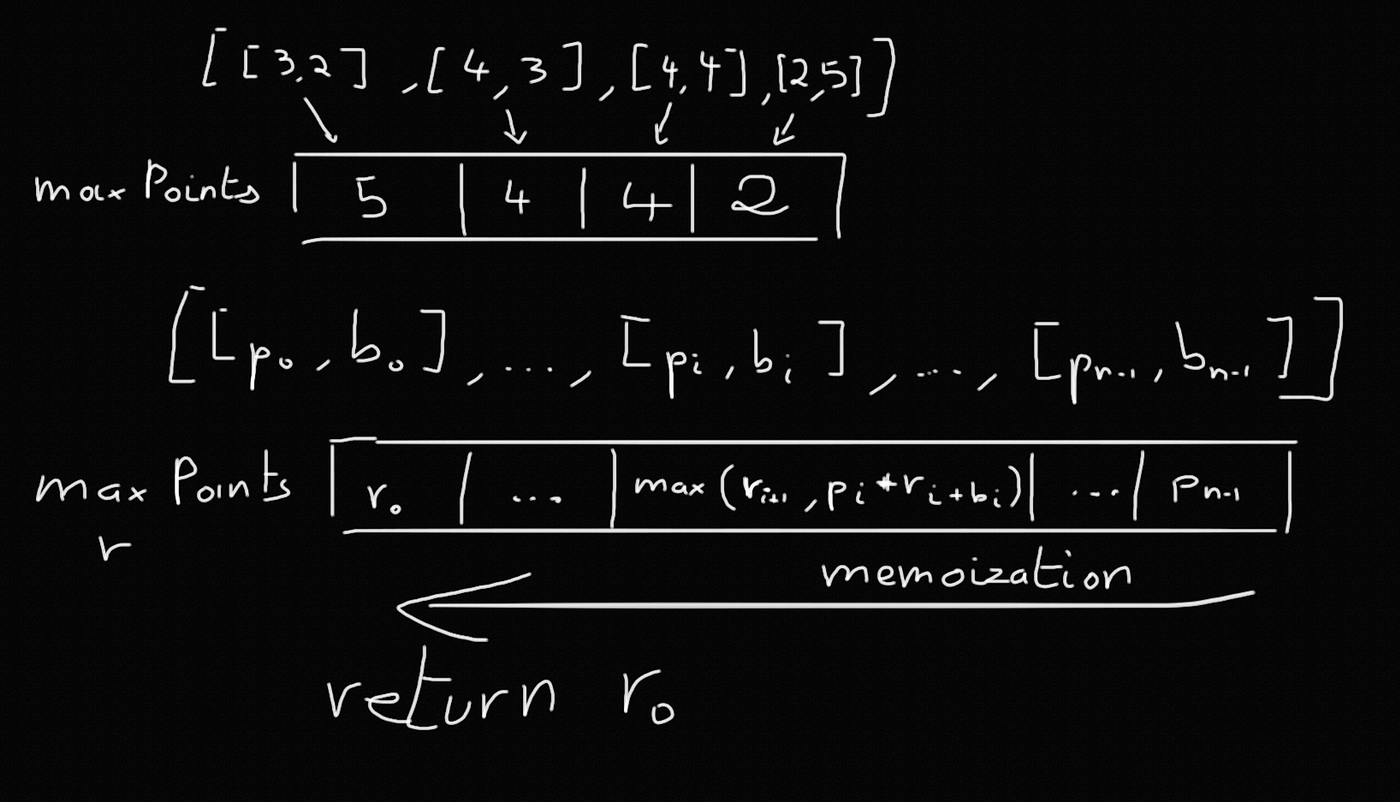 [[3,2],[4,3],[4,4],[2,5]]
max Points | 5 | 4 | 4 | 2 |
[[p₀,b₀],...,[pᵢ,bᵢ],...,[pₙ₋₁,bₙ₋₁]]
max Points | r₀ | ... | max(rᵢ₊₁,pᵢ+rᵢ+bᵢ) | ... | pₙ₋₁ |
r
memoization
return r₀